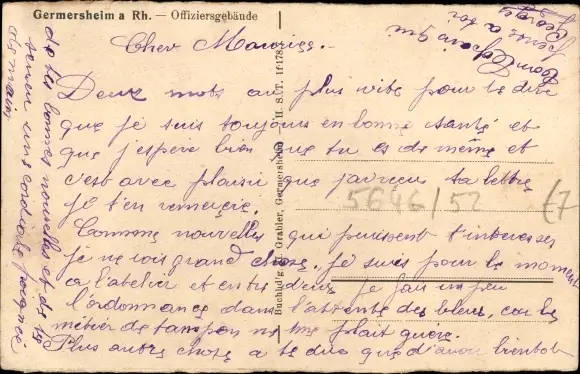 Germersheim a Rh. — Offiziersgebäude
Cher Maurice.
Deux mots au plus vite pour te dire
que je suis toujours en bonne santé et
que j'espère bien que tu es de même et
c'est avec plaisir que j'ai reçu ta lettre
je t'en remercie.
Comme nouvelles qui puissent t'interesser
je ne vois grand chose, je suis pour le moment
a l'atelier et entre deux je fais un peu
l'ordonnance dans l'attente des bleus, car le
métier de tampon ne me plait guère.
Plus autre chose a te dire que d'avoir bientot
de tes bonnes nouvelles et de te
serrer une cordiale poignée
de main
Ton Copain qui
pense a toi
Buchhdlg. H. Grabler, Germersheim H. S. T. 1f178
5646/52
£7